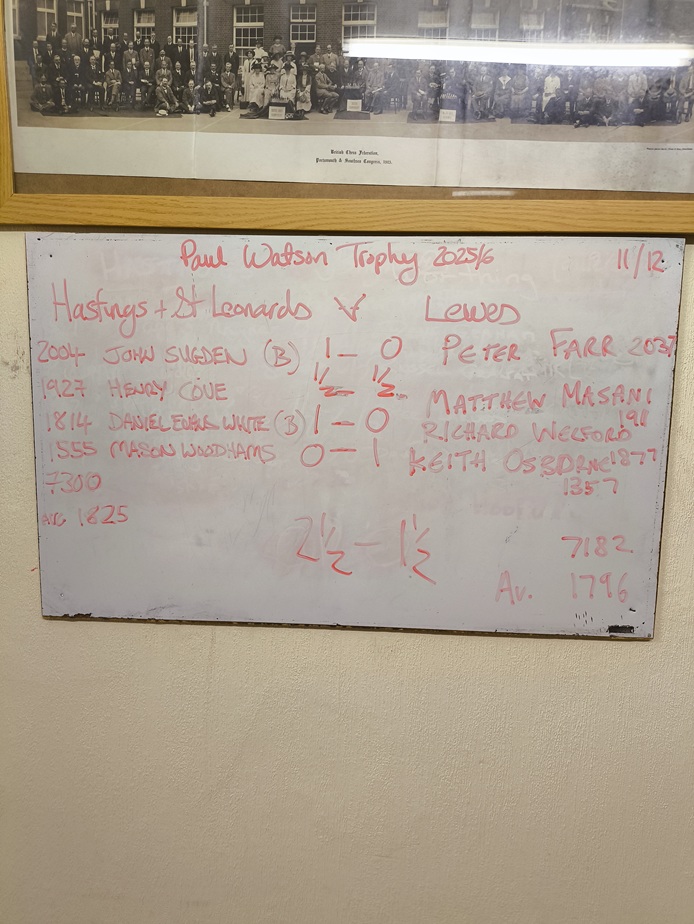 British Chess Federation,
Portsmouth & Southsea Congress,
Paul Watson Trophy 2025/6 11/12
Hastings + St Leonards V Lewes
2004 JOHN SUGDEN (B) 1 - 0 PETER FARR 2037
1927 HENRY COVE 1/2 - 1/2 MATTHEW MASANI 1911
1814 DANIEL EVANS WHITE (B) 1 - 0 RICHARD WELFORD 1877
1555 MASON WOODHAMS 0 - 1 KEITH OSBORNE 1357
7300
AVG 1825
2 1/2 - 1 1/2
7182
Av. 1796